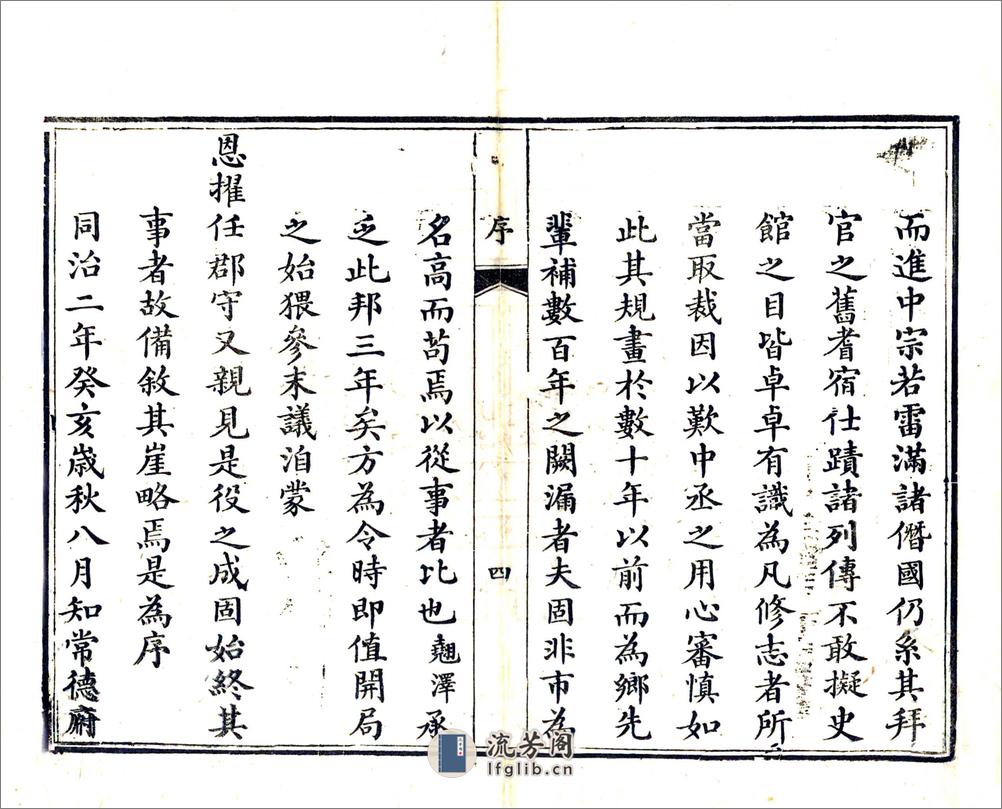 而進中宗若雷滿諸僭國仍系其拜
官之舊耆宿仕蹟諸列傳不敢擬史
館之目皆卓卓有識為凡修志者所
當取裁因以歎中丞之用心審慎如
此其規畫於數十年以前而為鄉先
輩補數百年之闕漏者夫固非市為
序
四
名高而苟焉以從事者比也翹澤承
乏此邦三年矣方為令時即值開局
之始猥參末議洎蒙
恩擢任郡守又親見是役之成固始終其
事者故備敘其崖略焉是為序
同治二年癸亥歲秋八月知常德府
流芳阁
lfglib.cn